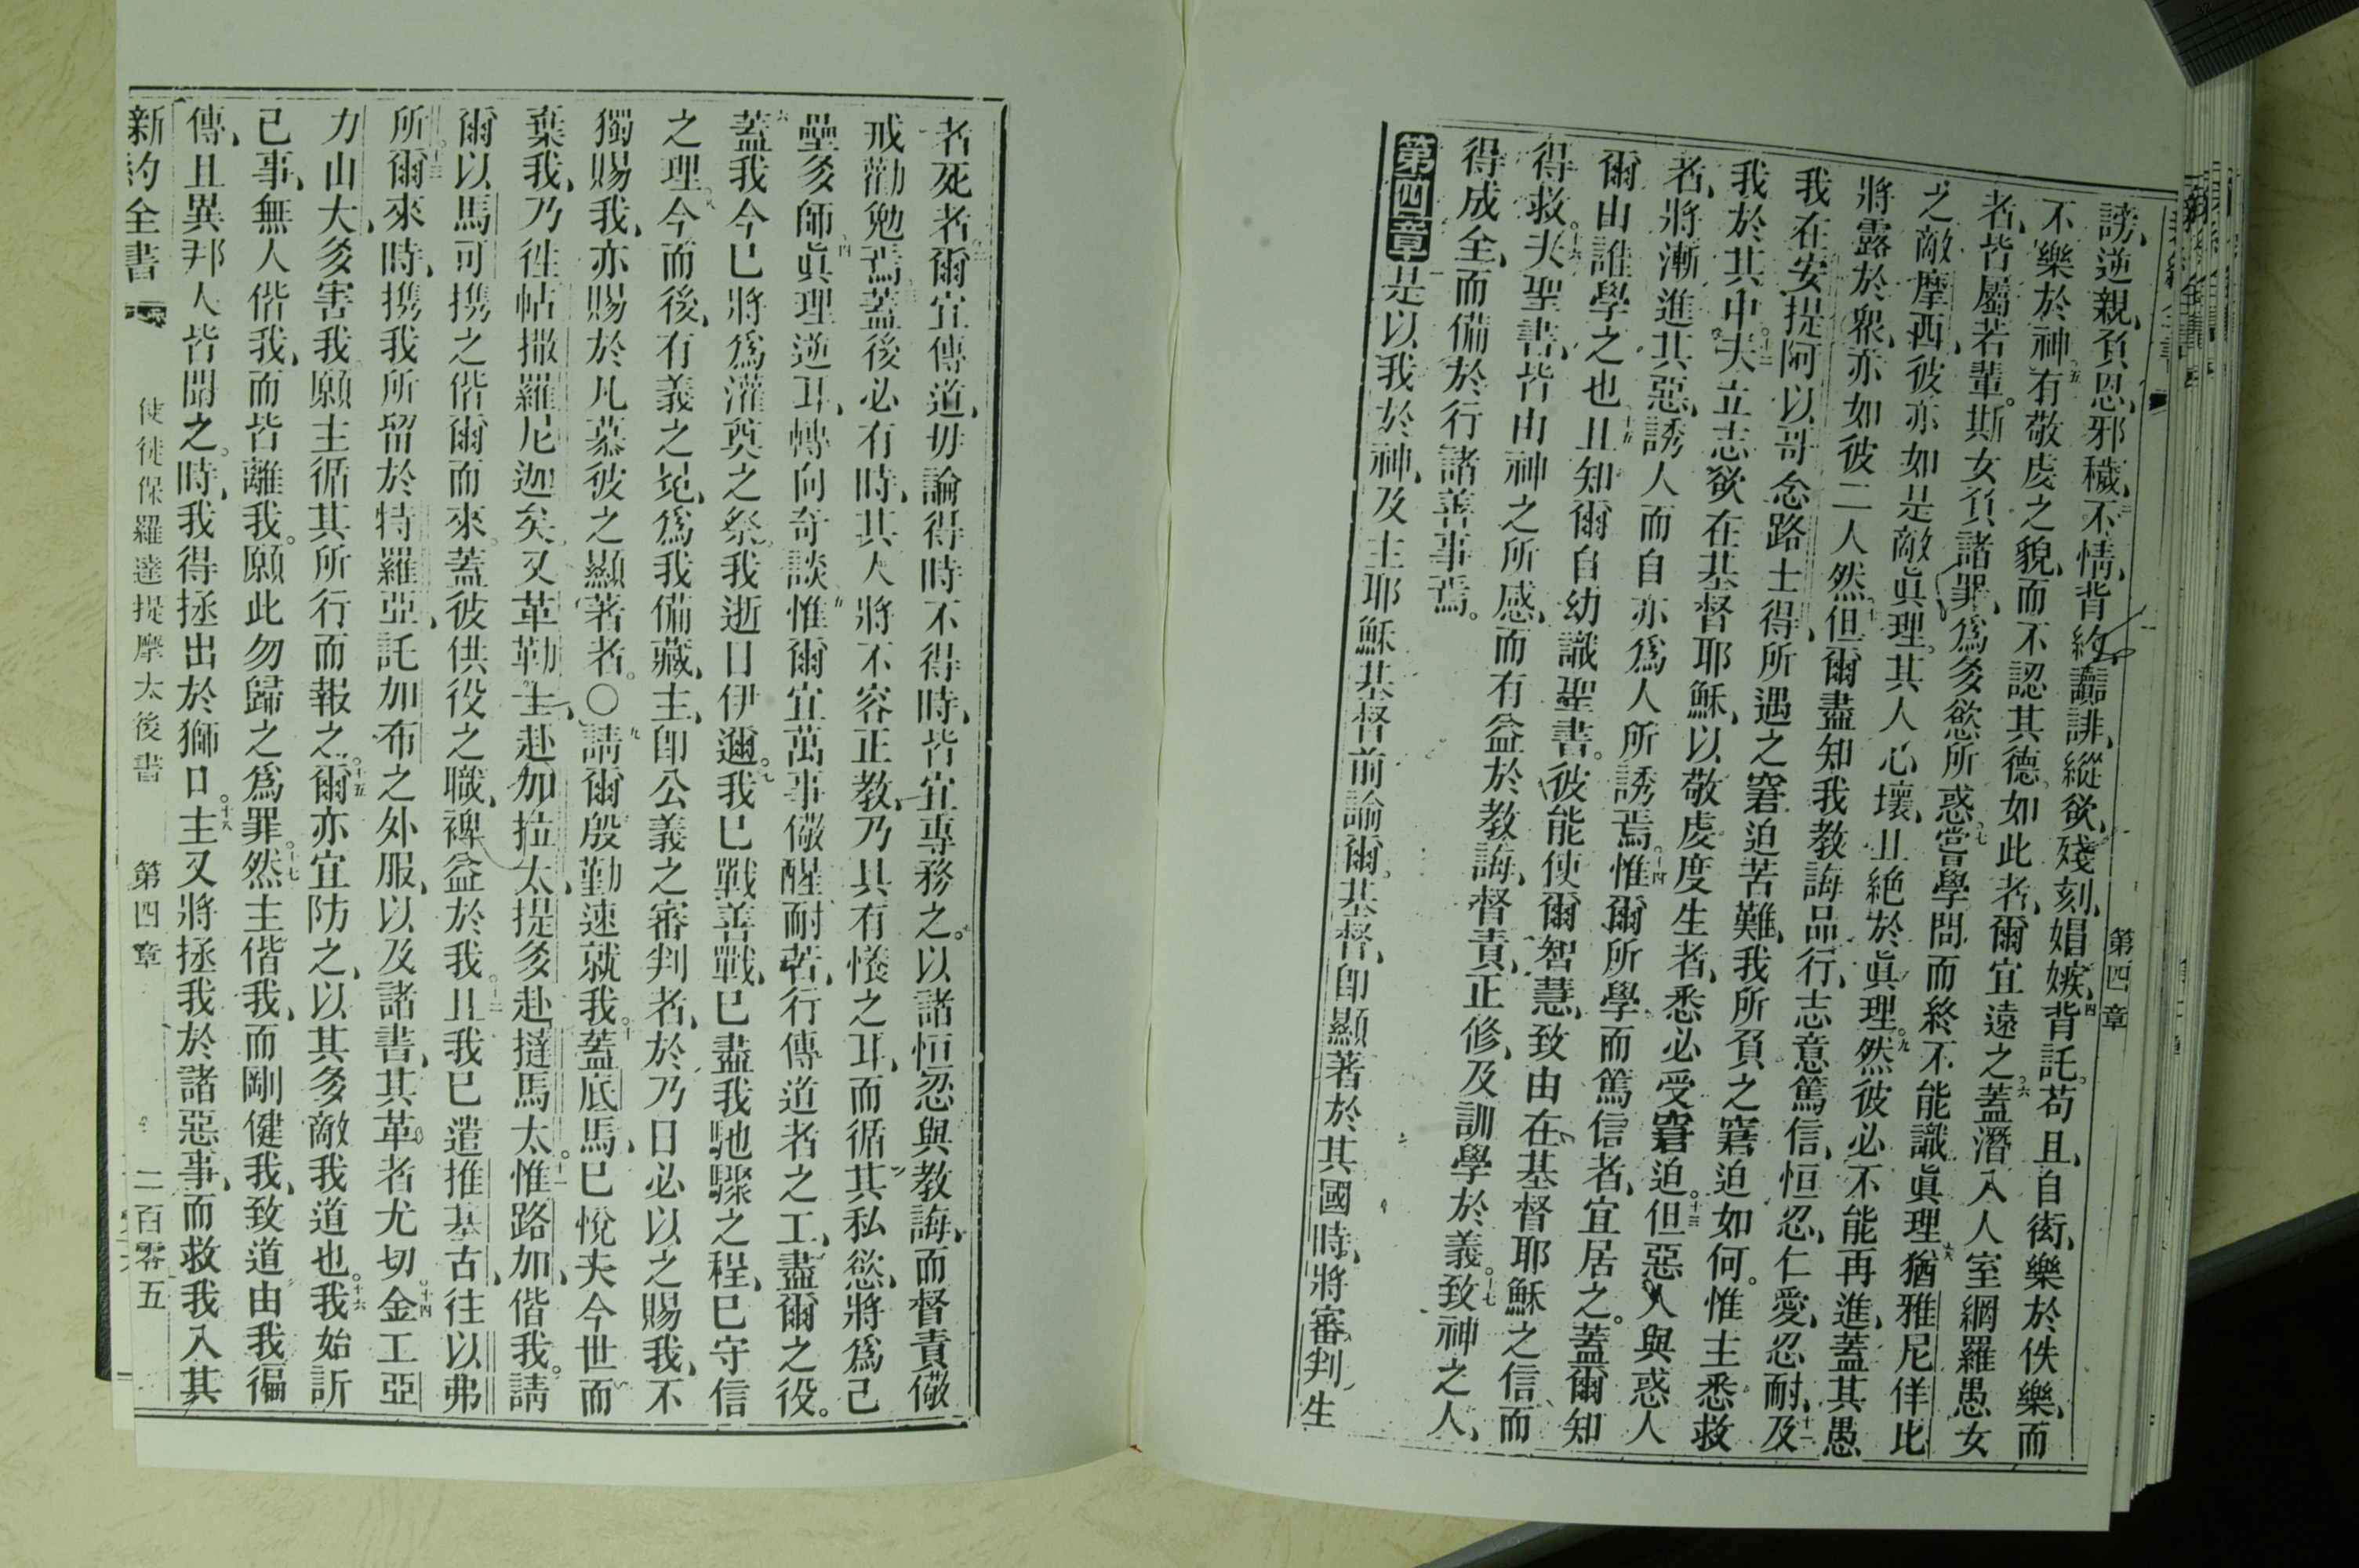 謗、逆親、負恩、邪穢、不情、背約、讟誹、縱欲、殘刻、娼嫉、背託。苟且、自衒、樂於佚樂、而
不樂於神、有敬虔之貌、而不認其德、如此者、爾宜遠之。蓋潛入人室、網羅愚女
者、皆屬若輩。斯女負諸罪、爲多慾所惑。嘗學問而終不能識眞理。猶雅尼佯比
之敵摩西、彼亦如是敵眞理。其人心壞、且絕於眞理。然彼必不能再進、蓋其愚
將露於衆、亦如彼二人然。但爾盡知我教誨品行、志意篤信、恒忍、仁愛、忍耐、及
我在安提阿以哥念路士得、所遇之窘迫苦難、我所負之窘迫如何。惟主悉救
我於其中。夫立志欲在基督耶穌、以敬虔度生者、悉必受窘迫。但惡人與惑人
者、將漸進其惡、誘人而自亦爲人所誘焉。惟爾所學而篤信者、宜居之。蓋爾知
爾由誰學之也、且知爾自幼識聖書。彼能使爾智慧、致由在基督耶穌之信而
得救。夫聖書、皆由神之所感、而有益於教誨、督責、正修、及訓學於義。致神之人、
得成全、而備於行諸善事焉。
第四章 是以我於神、及主耶穌基督前諭爾。基督、卽顯著於其國時、將審判生
第四章
者死者。爾宜傳道、毋論得時不得時、皆宜專務之。以諸恒忍與教誨、而督責儆
戒勸勉焉。蓋後必有時、其人將不容正教、乃具有癢之耳、而循其私慾、將爲己
壘多師。眞理逆耳、轉向奇談。惟爾宜萬事儆醒、耐苦、行傳道者之工、盡爾之役。
蓋我今已將爲灌奠之祭。我逝日伊邇。我已戰善戰、已盡我馳驟之程、已守信
之理。今而後、有義之冕、爲我備藏、主、卽公義之審判者、於乃日必以之賜我、不
獨賜我、亦賜於凡慕彼之顯著者。〇請爾殷勤速就我。蓋底馬、已悅夫今世而
棄我、乃徃帖撒羅尼迦矣。又革勒主、赴加拉太、提多赴撻馬太。惟路加、偕我。請
爾以馬可攜之偕爾而來、蓋彼供役之職、裨益於我。且我已遣推基古、往以弗
所。爾來時、攜我所留於特羅亞、託加布之外服、以及諸書、其革者尤切。金工亞
力山大、多害我、願主循其所行而報之。爾亦宜防之、以其多敵我道也。我始訴
已事、無人偕我、而皆離我。願此勿歸之爲罪。然主偕我、而剛健我、致道由我徧
傳、且異邦人皆聞之。時、我得拯出於獅口。主又將拯我於諸惡事、而救我入其
新約全書 使徒保羅達提摩太後書 第四章 二百零五